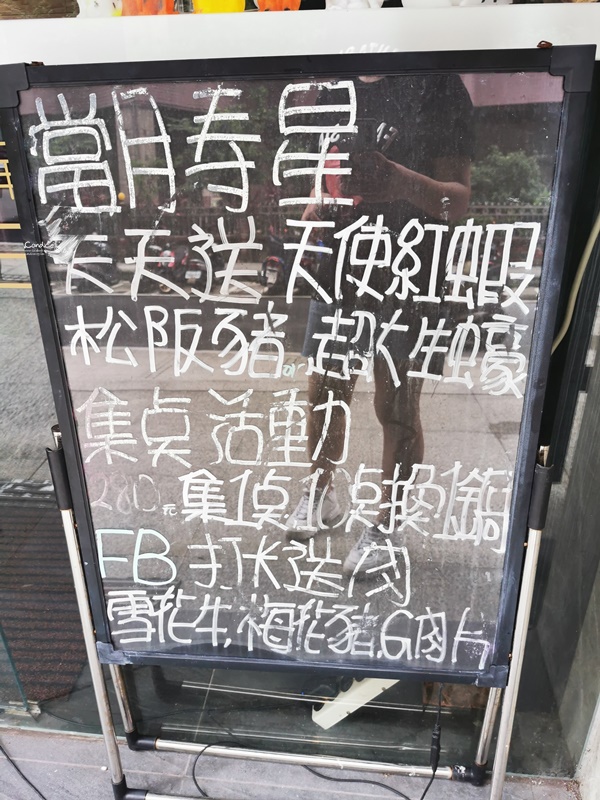 當月壽星
天天送 天使紅蝦
松阪豬 超大生蠔
集点活動
280元集1点 10点換1鍋
FB 打卡送肉
雪花牛,梅花豬,6肉片